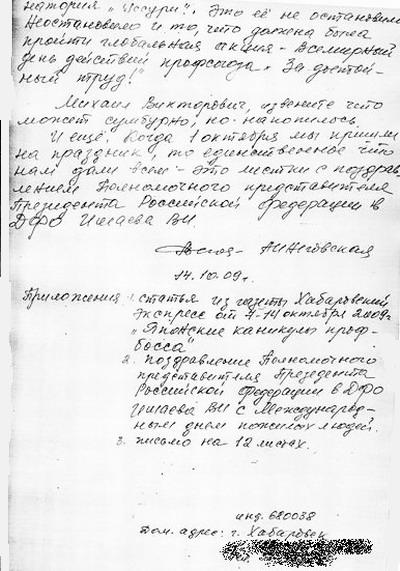 натория „Уссури“. Это её не остановило
Неостановило и то, что должна была
пройти глобальная акция - Всемирный
день действий профсоюза „За достой-
ный труд!“
Михаил Викторович, извените что
может сумбурно, но накопилось.
И ещё. Когда 1 октября мы пришли
на праздник, то единственное что
нам дали всем - это листки с поздрав-
лением Полномочного представителя
Президента Российской Федерации в
ДФО Ишаева ВИ.
14.10.09г.
Приложения 1. статья из газеты Хабаровский
экспресс от 7-14 октября 2009г
„Японские каникулы проф-
босса“
2. поздравление Полномочного
представителя Президента
Российской Федерации в ДФО
Ишаева ВИ с Международ-
ным днем пожилых людей.
3. письмо на 12 листах.
инд. 680038
Дом. адрес: г. Хабаровск